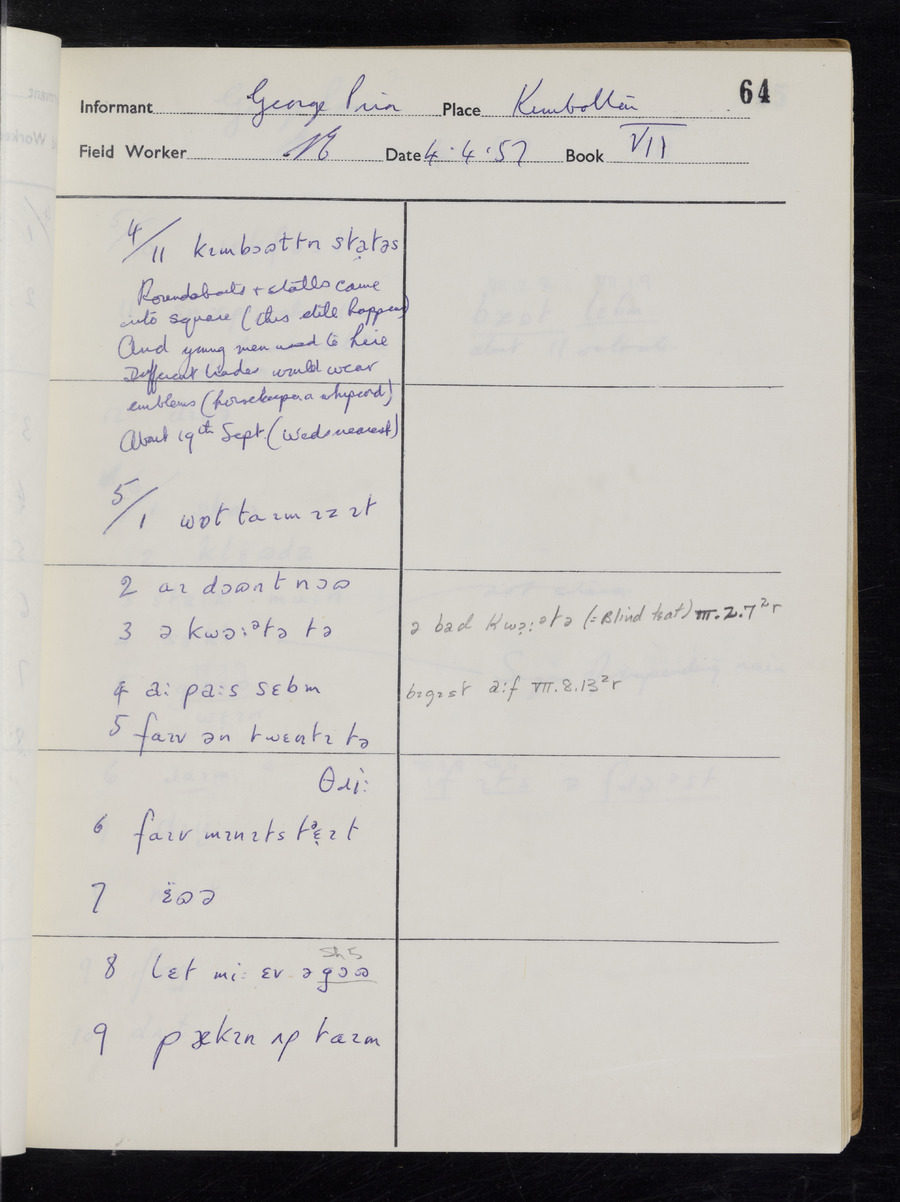 64
Informant George Prior Place Kimbolton
Field Worker Date 4.4.57 Book VII
4/11 kɪmbɔʊltn statəs
Roundabouts + stalls came
into square (this still happens)
And young men used to hire
Different trades would wear
emblems (horsekeeper a whipcord)
About 19th Sept. (Weds nearest)
5/1 wɒt taɪm ɪz ɪt
2 aɪ dəʊnt nɔʊ
3 ə kwɔ:ᵊtə tə
ə bad kwɔ̣:ətə (= Blind teat) III.2.7²r
4 a: pa:s sɛbm
bɪgɪst a:f VII.8.13²r
5 faɪv ən twɛntɪ tə
θɹi:
6 faɪv mɪnɪts tᵊɛ̣ɪt
7 ɛ̈ʊə
8 lɛt mi: ɛv ə gɔʊ
Sh 5
9 pækɪn ʌp taɪm